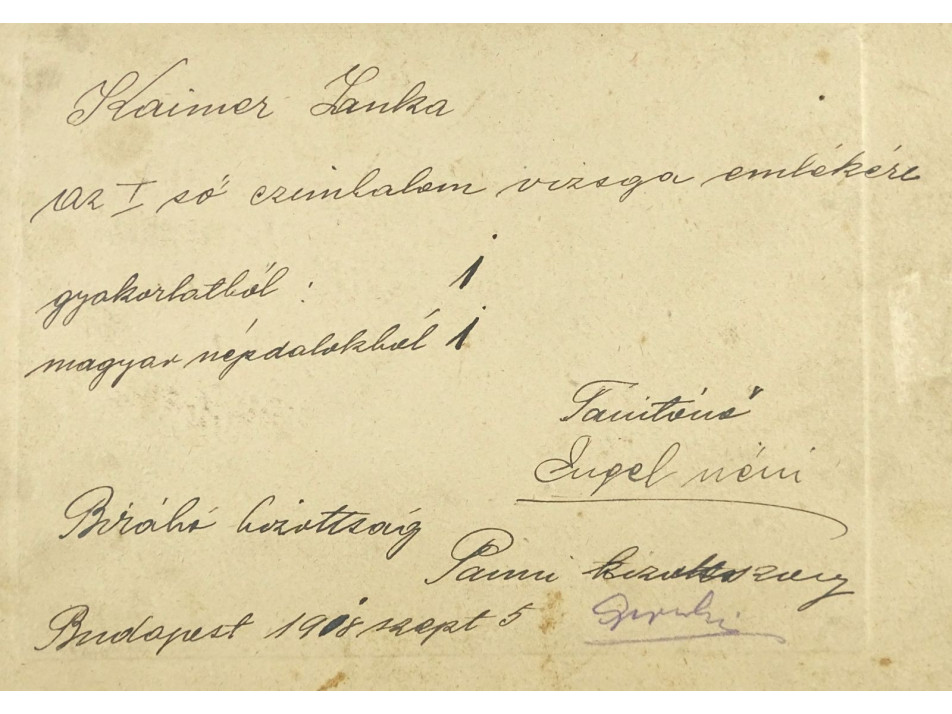 Kaimer Lanka
Az I ső czimbalom vizsga emlékére
gyakorlatból : 1
magyar népdalokból 1
Tanitónő
Engel néni
Biráló bizottság
Panni
Budapest 1918 szept 5